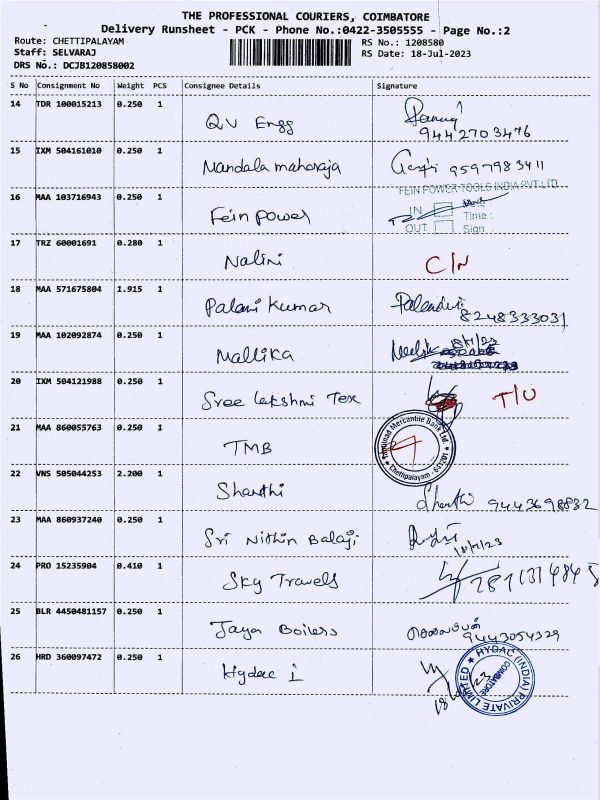 THE PROFESSIONAL COURIERS, COIMBATORE
Delivery Runsheet - PCK - Phone No.:0422-3505555 - Page No.:2
Route: CHETTIPALAYAM
RS No.: 1208580
Staff: SELVARAJ
RS Date: 18-Jul-2023
DRS No.: DCJB120858002
S No Consignment No Weight PCS Consignee Details Signature
14 TDR 100015213 0.250 1 QV Engg
9442703476
15 IXM 504161010 0.250 1 Mandala maharaja 9597983411
FEIN POWER TOOLS INDIA PVT LTD
16 MAA 103716943 0.250 1 Fein Power
IN
Time :
OUT Sign
17 TRZ 60001691 0.280 1 Nalini C/N
18 MAA 571675804 1.915 1 Palani Kumar
8248333031
19 MAA 102092874 0.250 1 Mallika 18/7/23
20 IXM 504121988 0.250 1 Sree Lakshmi Tex T/U
21 MAA 860055763 0.250 1 TMB
Tamilnad Mercantile Bank Ltd
Chettipalayam - 641201
22 VNS 505044253 2.200 1 Shanthi
9443698832
23 MAA 860937240 0.250 1 Sri Nithin Balaji
18/7/23
24 PRO 15235904 0.410 1 Sky Travels
25 BLR 4450481157 0.250 1 Jaya Boilers
9443054329
26 HRD 360097472 0.250 1 Hydac i
HYDAC (INDIA) PRIVATE LIMITED
COIMBATORE